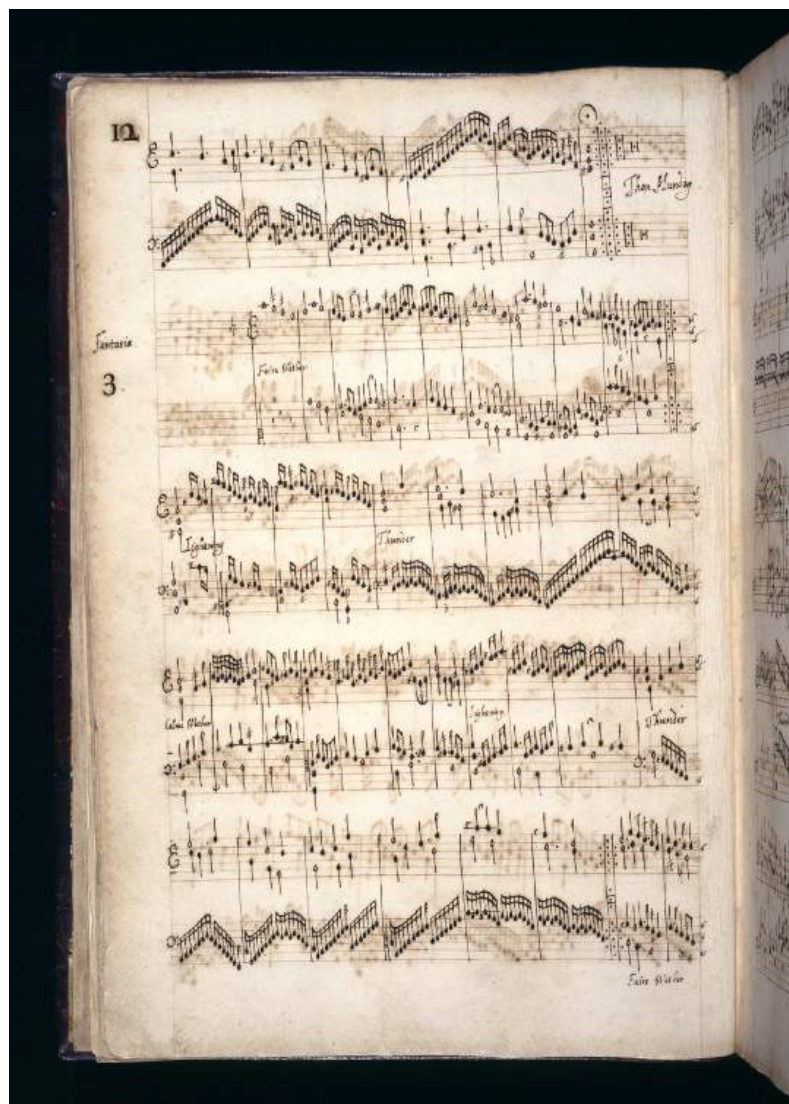 12
Thon. Munday.
Fantasia.
3
Faire Wether
Lightening
Thunder
Calme Wether
Lightening
Thunder
Faire Wether